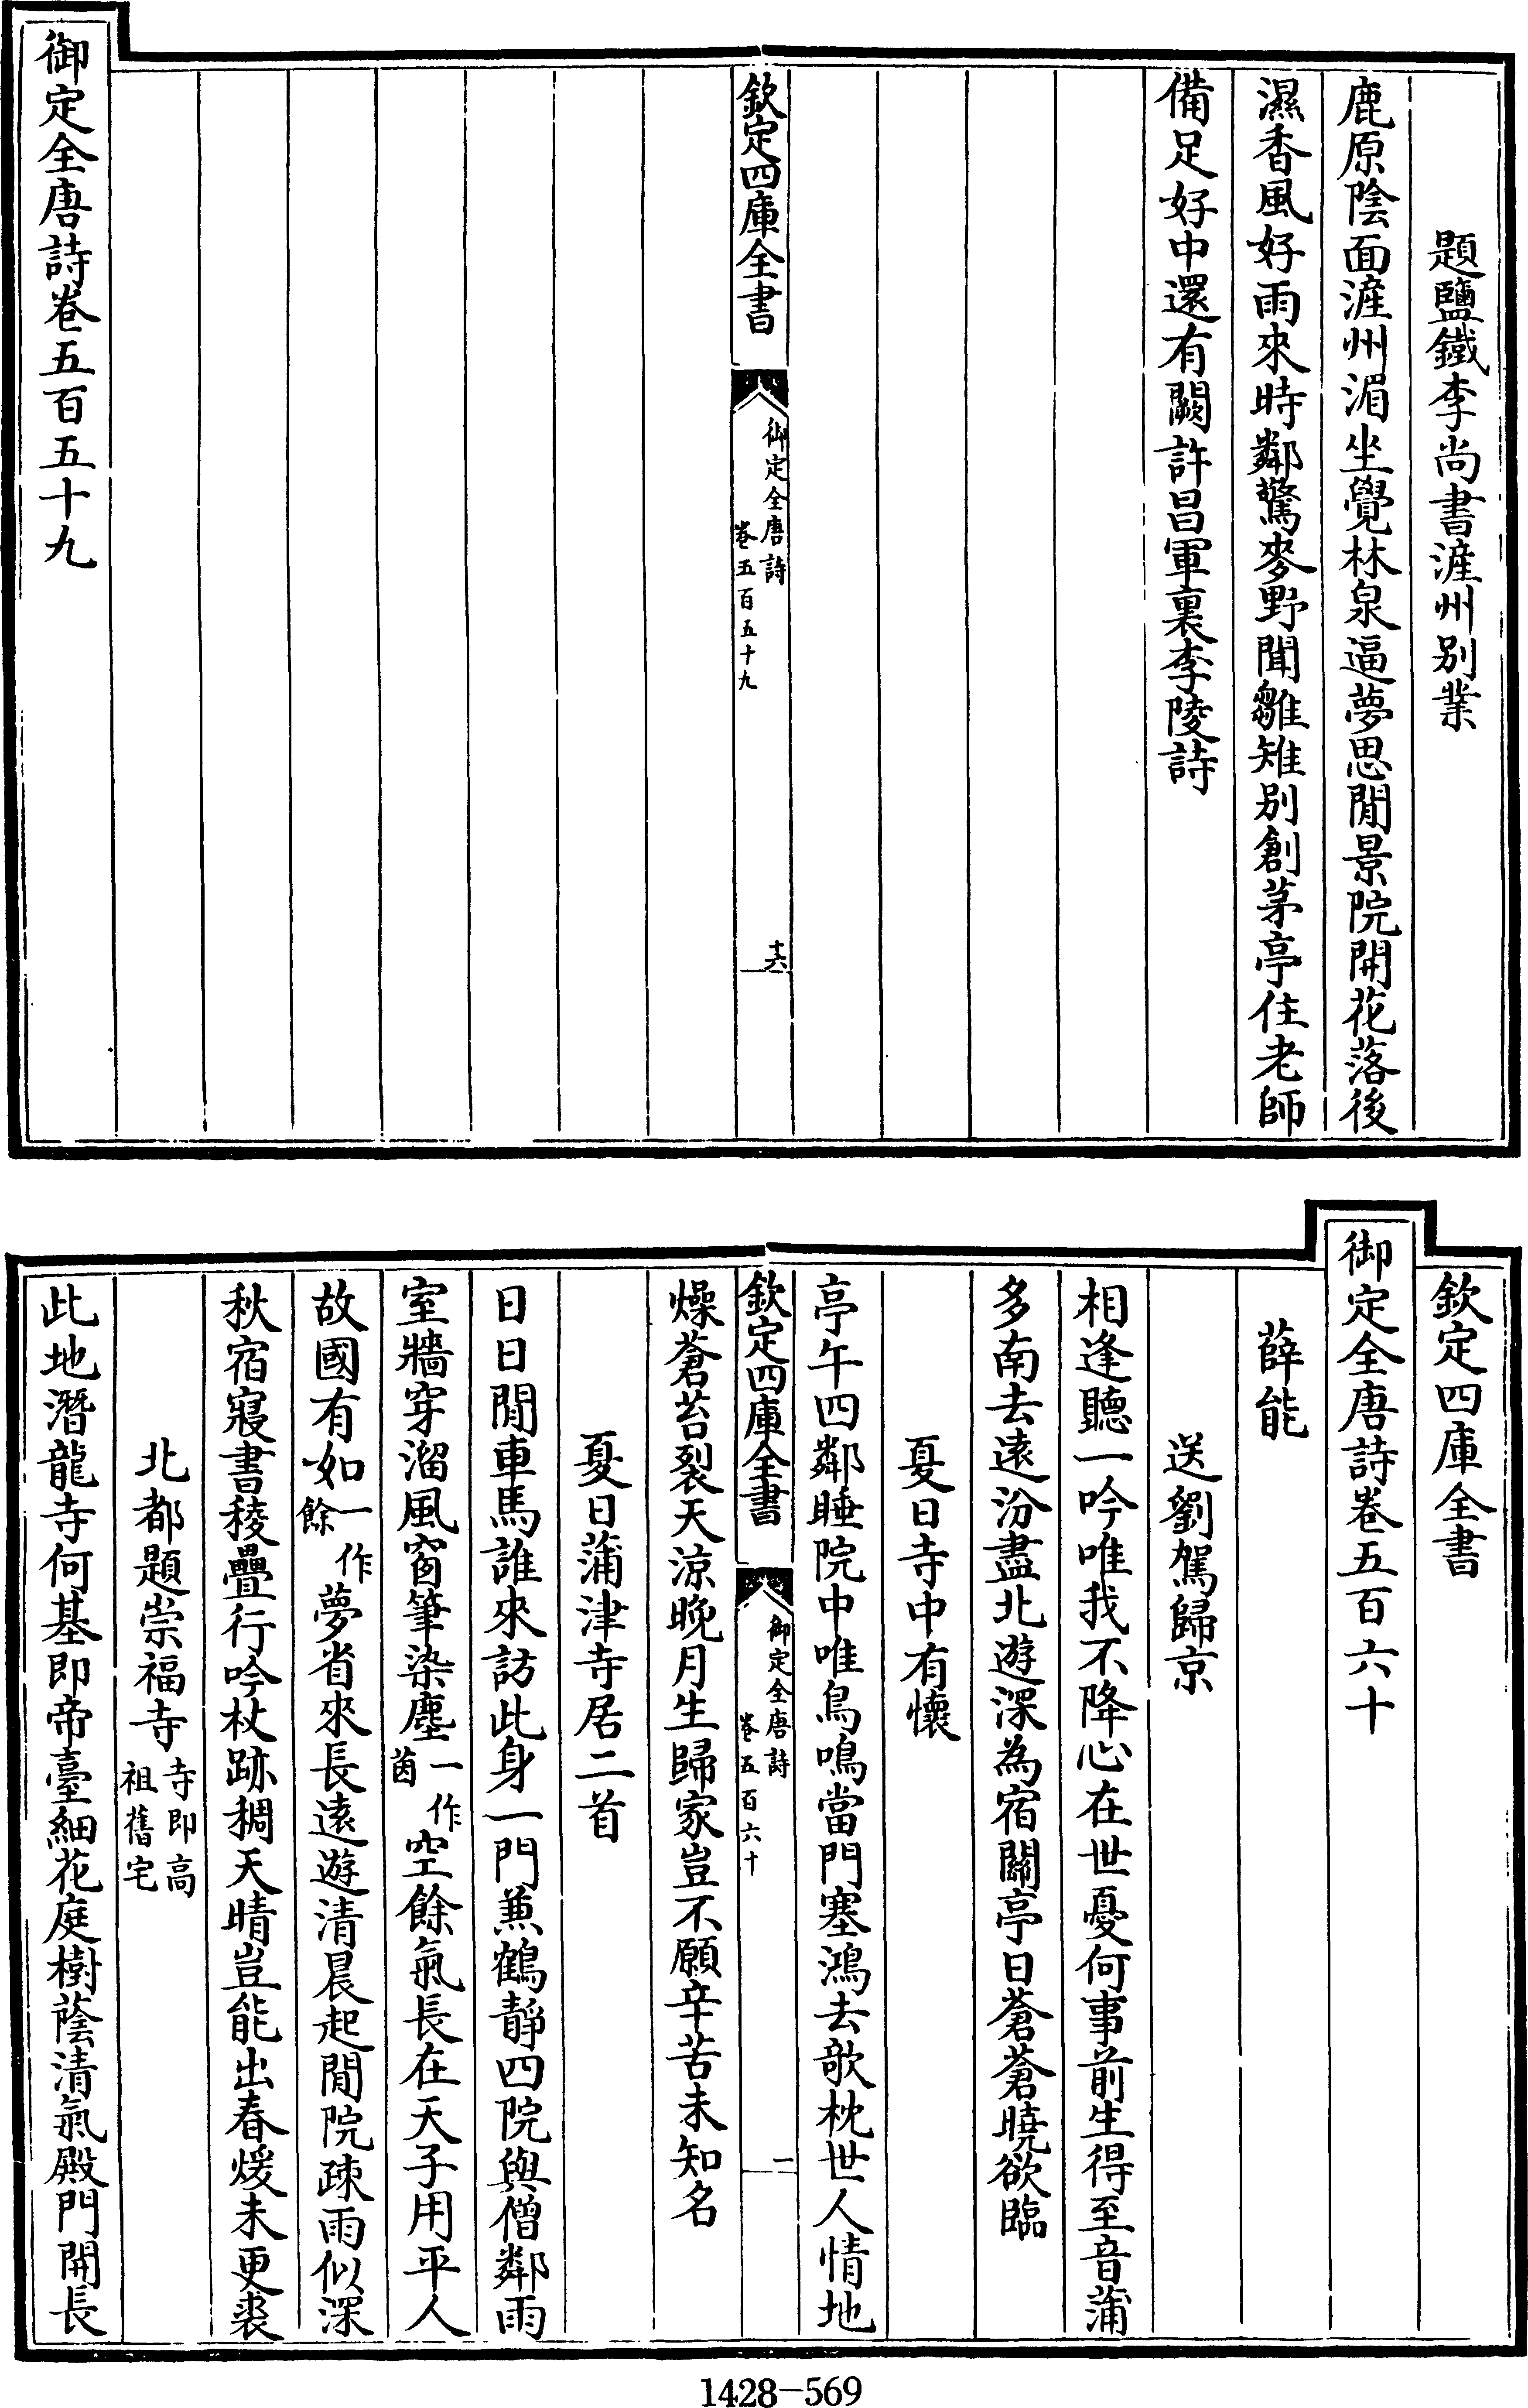 題鹽鐵李尚書滻州别業
鹿原陰面滻州湄坐覺林泉逼夢思閒景院開花落後
濕香風好雨來時鄰驚麥野聞雛雉别創茅亭住老師
備足好中還有闕許昌軍裏李陵詩
欽定四庫全書
御定全唐詩
卷五百五十九
十六
御定全唐詩卷五百五十九
欽定四庫全書
御定全唐詩卷五百六十
薛能
送劉駕歸京
相逢聽一吟唯我不降心在世憂何事前生得至音蒲
多南去遠汾盡北遊深為宿關亭日蒼蒼曉欲臨
夏日寺中有懷
亭午四鄰睡院中唯鳥鳴當門塞鴻去欹枕世人情地
欽定四庫全書
御定全唐詩
卷五百六十
一
燥蒼苔裂天涼晚月生歸家豈不願辛苦未知名
夏日蒲津寺居二首
日日閒車馬誰來訪此身一門兼鶴靜四院與僧鄰雨
室牆穿溜風窗筆染塵一作茵空餘氣長在天子用平人
故國有如一作餘夢省來長遠遊清晨起閒院疎雨似深
秋宿寢書稜疊行吟杖跡稠天晴豈能出春煖未更裘
北都題崇福寺寺即高祖舊宅
此地潛龍寺何基即帝臺細花庭樹蔭清氣殿門開長
1428-569